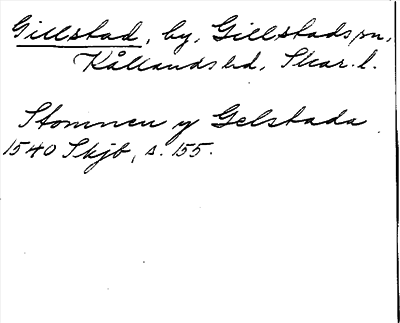 Gillstad, by, Gillstads sn,
Kållands hd, Skar. l.
Stommen y Gelstada
1540 Skjb, s. 155.